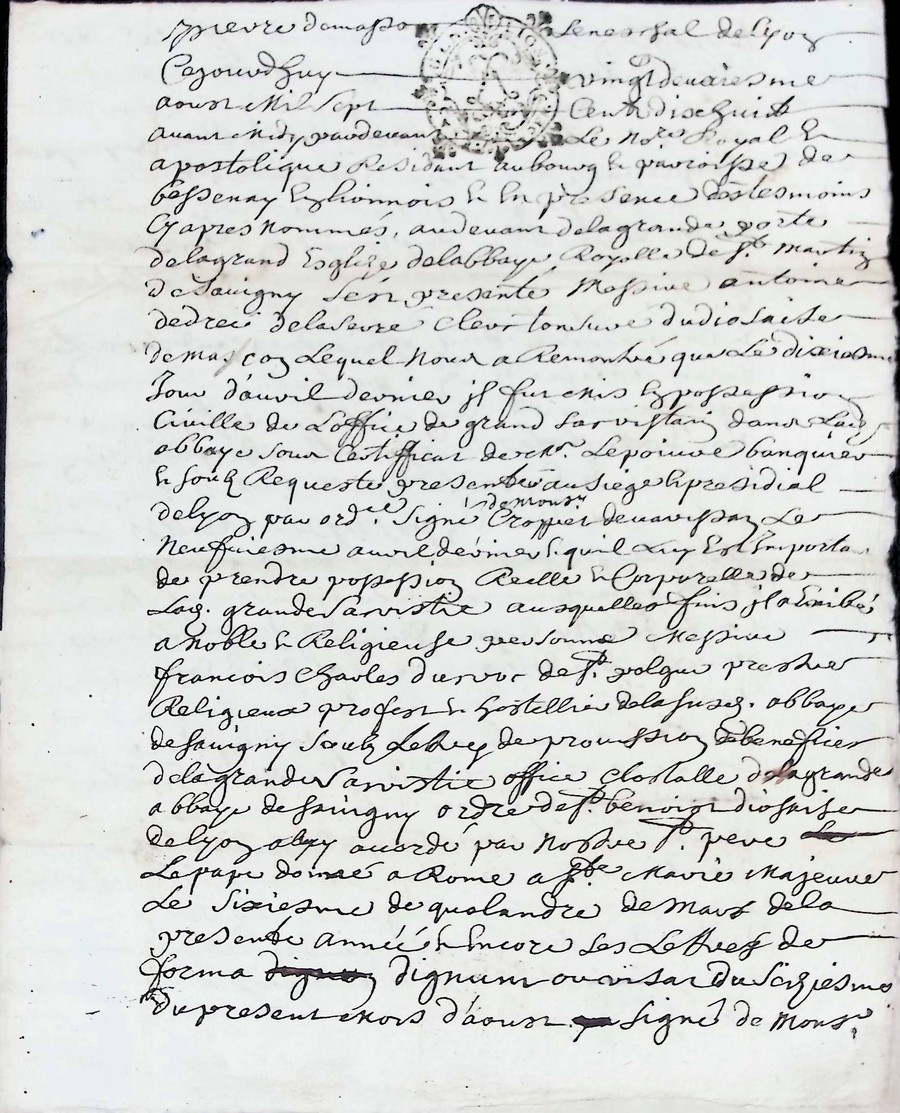 pierre damasso Seneschal de Lyon
Cejourdhuy vingtdeuxiesme
aoust Mil Sept Cent dischuit
avant midy pardevant Le No.re Royal &
apostolique Residant au bourg & parroisse de
bessenay en lionnois & en presence des tesmoins
Cy apres Nommés, audevant de la grande porte
de la grand Esglize de labbaye Royalle de St. Martin
de Savigny Sest presenté Messire antoine
de drée de la Serre Clerc tonsuré du diosaise
de mascon Lequel Nous a Remontré que Le dixiesme
Jour d'avril dernier il fut mis en possession
Civille de L'office de grand Sacristain dans Lad
abbaye sous Certifficat de mr. Lepoivre banquier
& soub Requeste presentée au siege & presidial
de Lyon par ord.ce Signé de monsr Croppet de varissan Le
Neufviesme avril dernier & quil Luy Est Importa
de prendre possession Reelle & Corporelle de
Lad. grande Sacristie ausquelles fins il a Exibé
a Noble & Religieuse personne Messire
francois Charles du croc de St. polgue prestre
Religieux profest & hostellier de la susd. abbaye
de savigny soub Les bulles de provission de benefice
de la grande Sacristie office Clostralle de la grande
abbaye de Savigny ordre de St. benoist diosaise
de Lyon a luy acordé par Nostre St. pere
Le pape donné a Rome a Ste Marie Majeure
Le Sixiesme de qualandre de Mars de la
presente année & Encore Ses Lettres de
forma dignum ou visat du Seiziesme
du present mois d'aoust Signé de Monsr